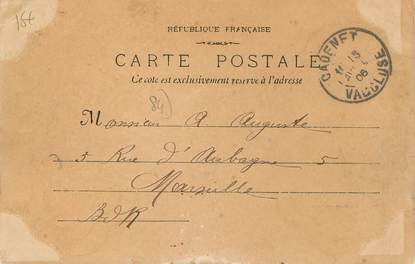 15€
RÉPUBLIQUE FRANÇAISE
CARTE POSTALE
Ce côté est exclusivement réservé à l'adresse
CADENET
15
06
VAUCLUSE
(84)
Monsieur A. Auguste
5 Rue d'Aubagne 5
Marseille
BdR